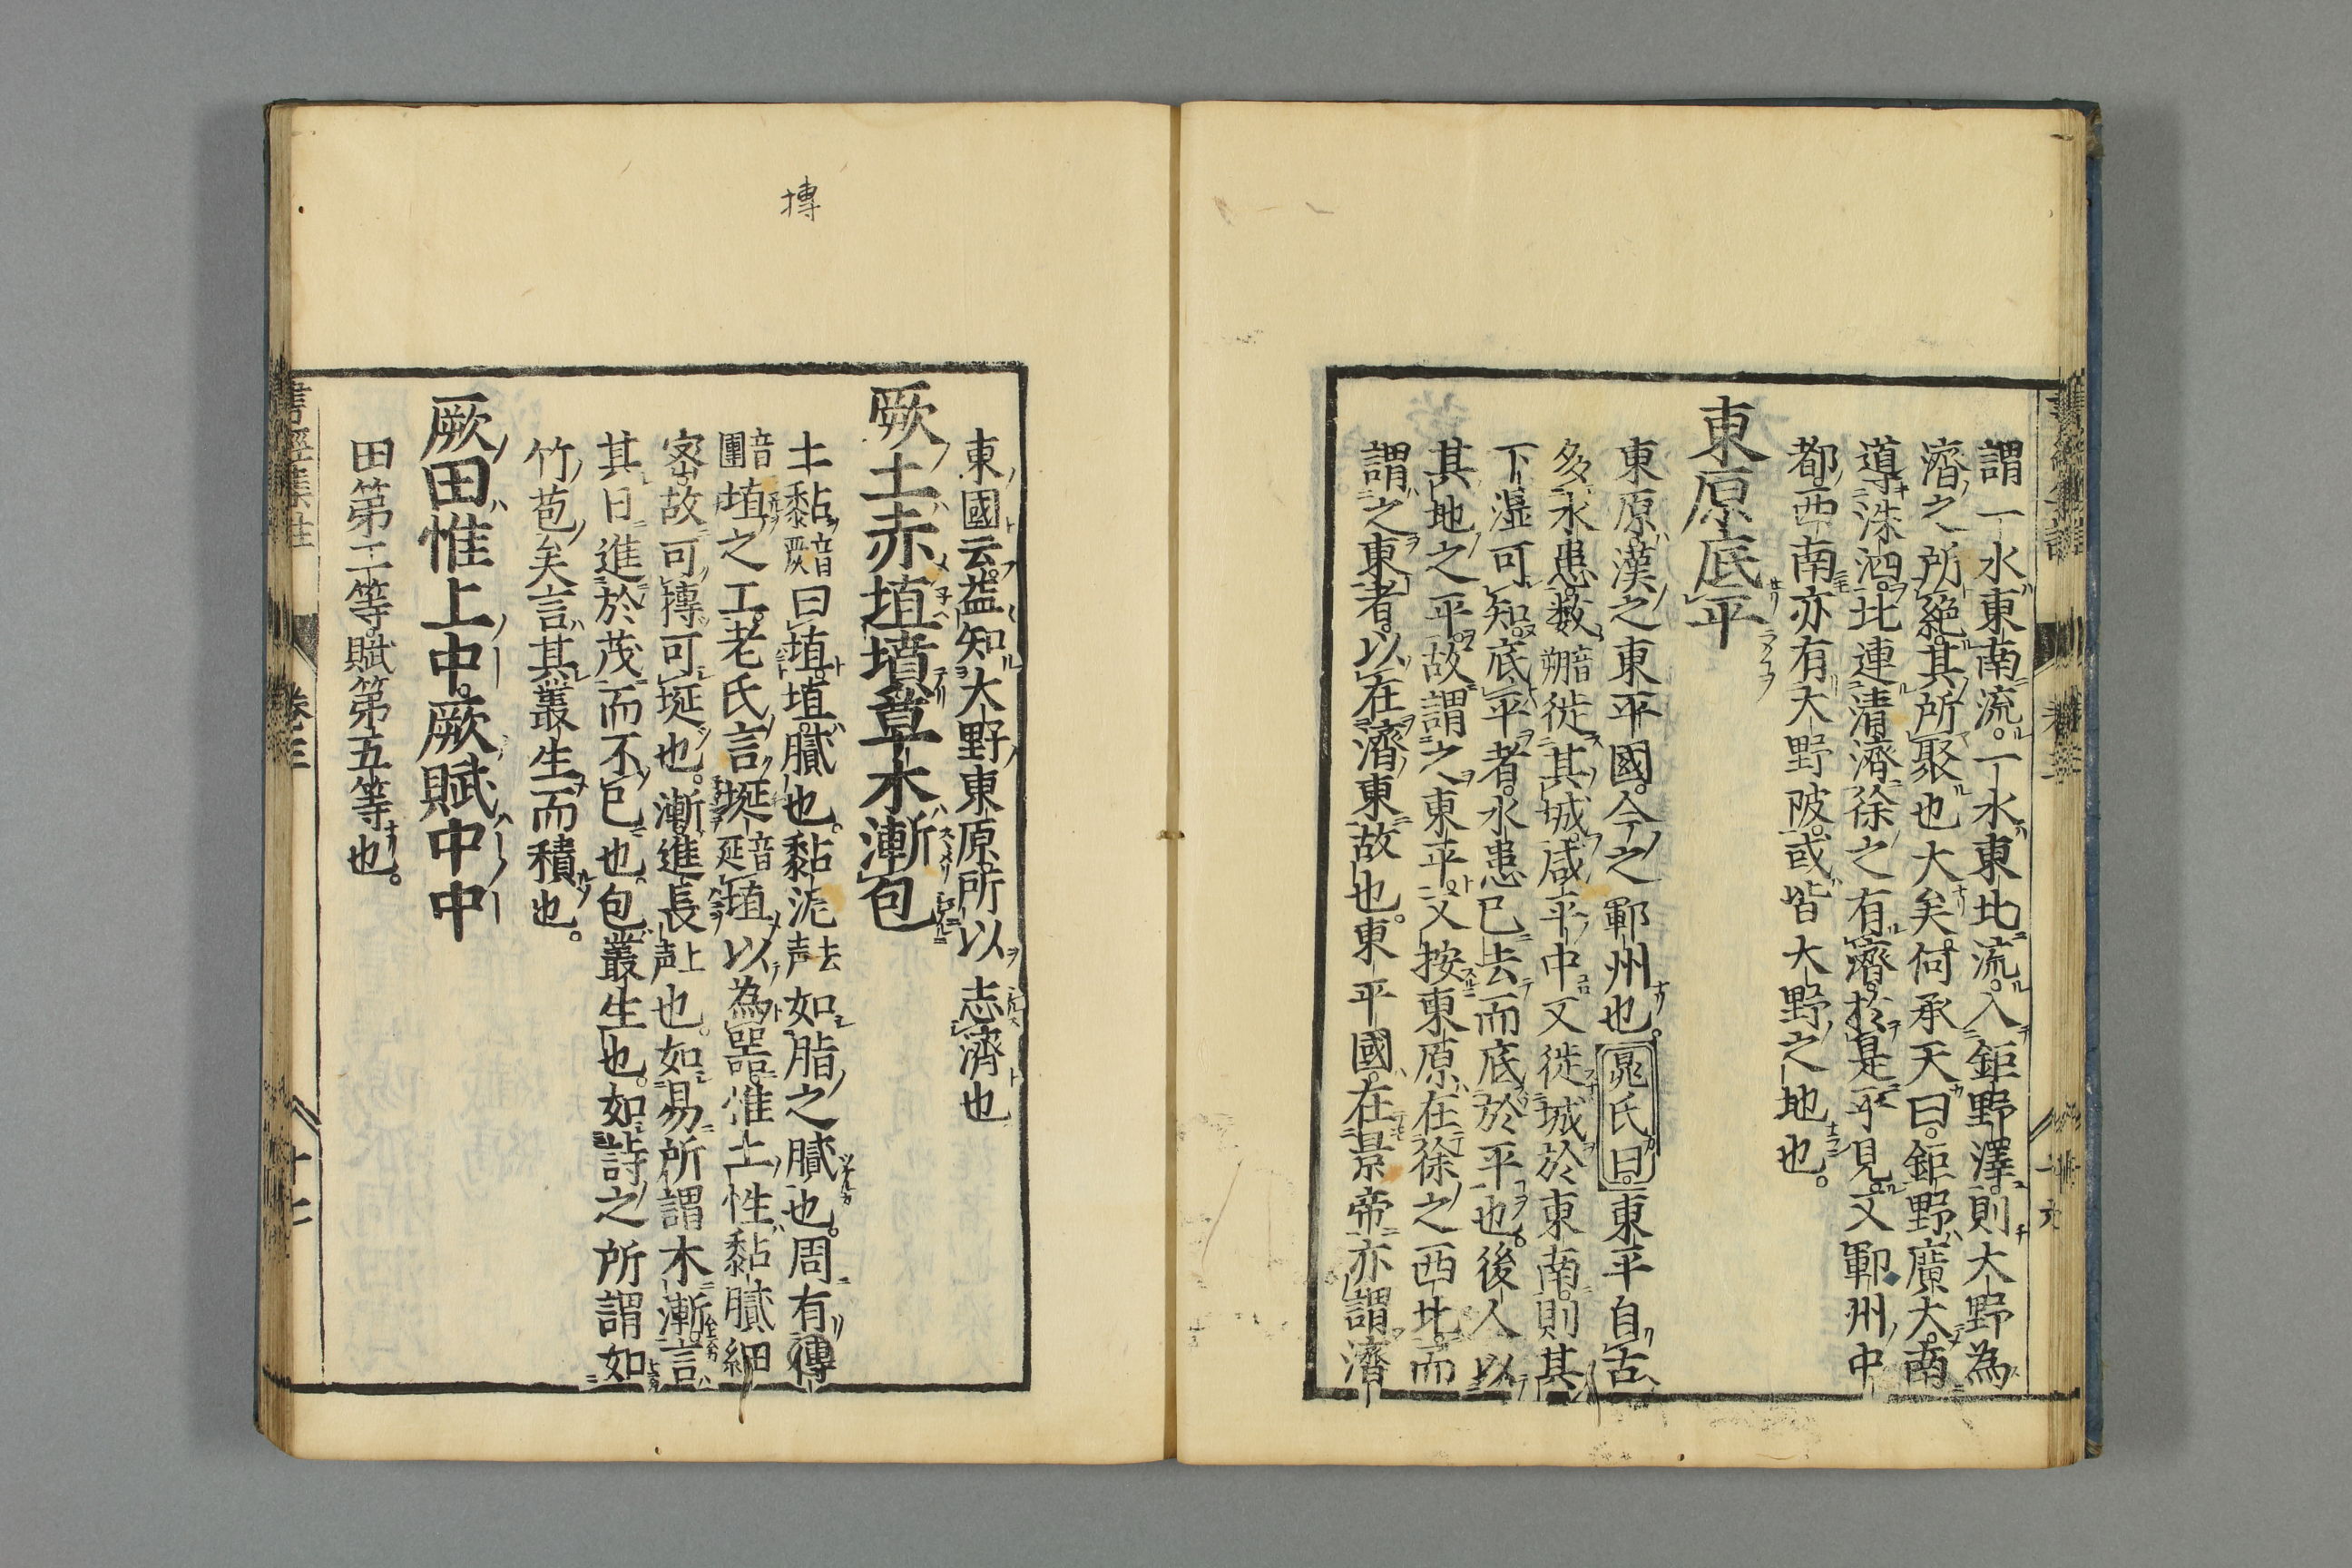 謂一水東南流。一水東北流。入鉅野澤。則大野為
濟之所絶。其所聚也大矣。何承天曰。鉅野廣大。南
導洙泗。北連清濟。徐之有濟。於是乎見。又鄆州中
都西南亦有大野陂。或皆大野之地也。
東原底平
東原。漢之東平國。今之鄆州也。晁氏曰。東平自古
多水患。数音朔徙其城。咸平中又徙城於東南。則其
下湿可知。底平者。水患已去而底於平也。後人以
其地之平。故謂之東平。又按東原在徐之西北。而
謂之東者。以在濟東故也。東平國。在景帝亦謂濟
東國云。益知大野東原所以志濟也
厥土赤埴墳草木漸包
土黏曰埴。埴。膩也。黏泥去声如脂之膩也。周有摶
埴之工。老氏言埏音延埴以為器。惟土性黏膩細
密。故可摶可埏也。漸進長上声也。如易所謂木漸。言
其日進於茂而不已也。包叢生也。如詩之所謂如
竹苞矣。言其叢生而積也。
厥田惟上中。厥賦中中
田第二等。賦第五等也。
摶
書經集註
卷三